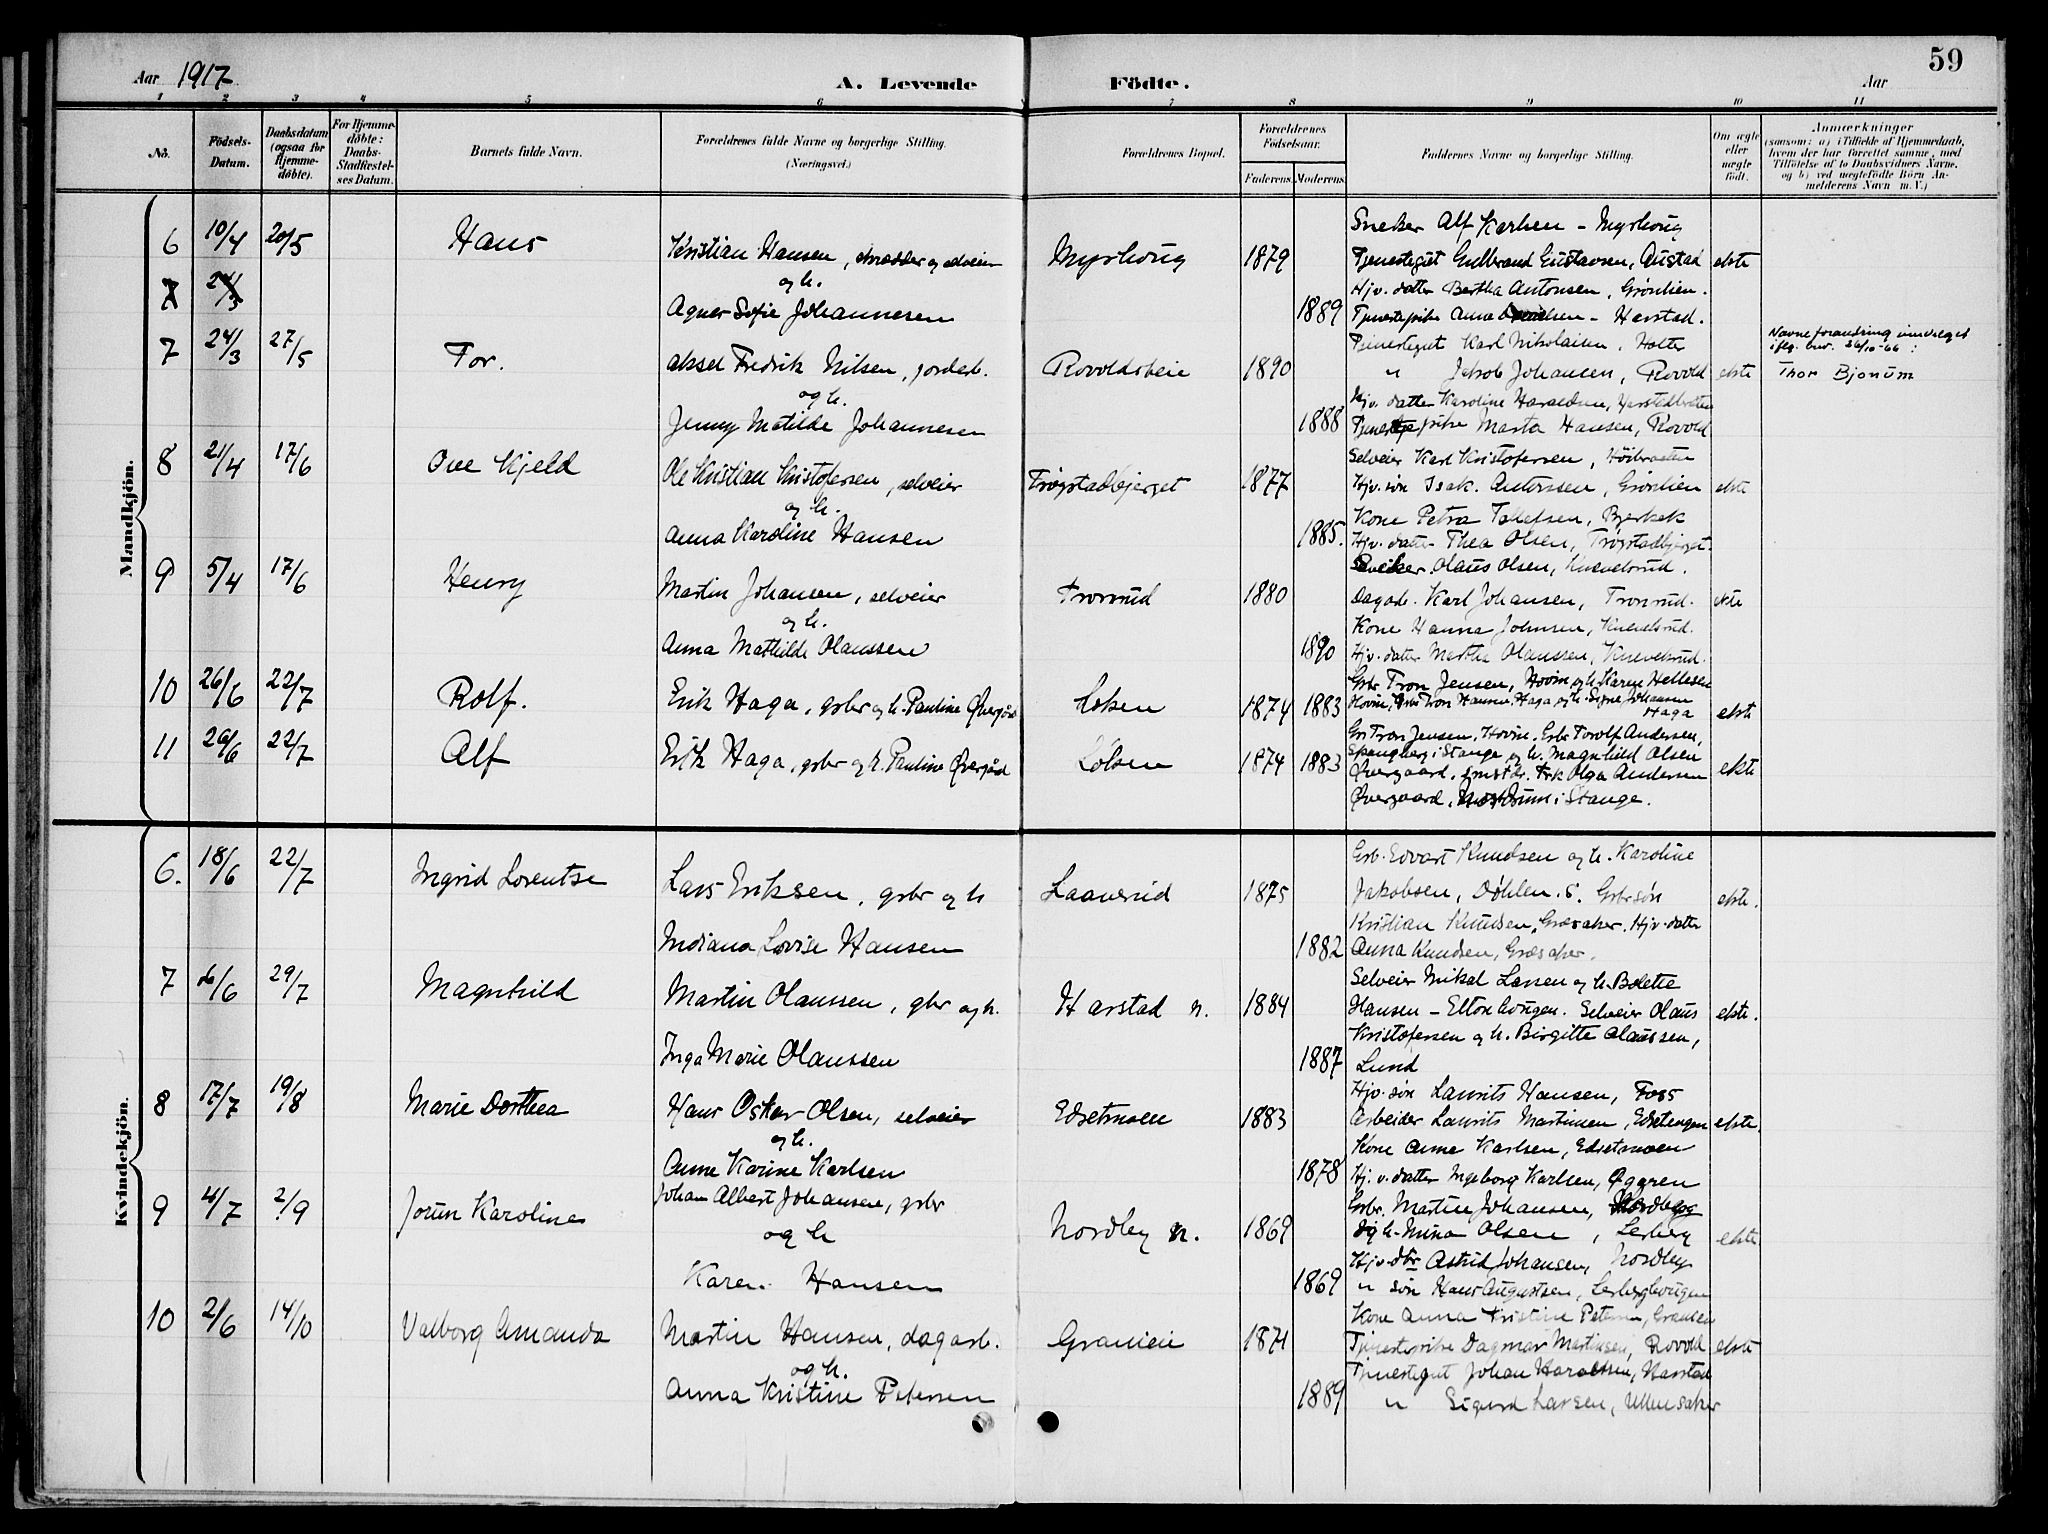 Aar 1917
A. Levende
Födte.
Aar
59
1 2 3 4 5 6 7 8 9 10 11
No.
Födsels-
Datum.
Daabsdatum
(ogsaa for
Hjemme-
döbte).
For Hjemme-
döbte:
Daabs-
Stadfæstel-
ses Datum.
Barnets fulde Navn.
Forældrenes fulde Navne og borgerlige Stilling.
(Næringsvei.)
Forældrenes Bopæl.
Forældrenes
Födselsaar.
Faderens. Moderens.
Faddernes Navne og borgerlige Stilling.
Om ægte
eller
uægte
født.
Anmærkninger
(saasom: a) i Tilfælde af Hjemmedaab,
hvem der har forrettet samme, med
Tilföielse af to Daabsvidners Navne.
og b) ved uægtefödte Börn An-
melderens Navn m. V.)
Mandkjön.
6 10/4 20/5 Hans
Kristian Hansen, skrædder og selveier
og h.
Agnes Sofie Johannesen
Myrhoug 1879 1889
Sneker Alf Karlsen - Myrhoug
Tjenestegut Gulbrand Gustavsen, Austad
Hjv. datter Bertha Antonsen, Grønlien.
Tjenestepike Anna - Harstad.
ekte
7 24/3
7 24/3 27/5 Tor.
Aksel Fredrik Nilsen, jordarb.
og h.
Jenny Matilde Johannesen
Rovoldsbeie 1890 1888
Tjenestegut Karl Nikolaisen, Holter
" Jakob Johansen, Rovold
Hjv. datter Karoline Haraldsen, Harstadbraten
Tjenestepike Marta Hansen, Rovold
ekte
Navneforandring innvilget
iflg. bev. 26/10-66:
Thor Bjonum
8 21/4 17/6 Ove Kjeld
Ole Kristian Kristofersen, selveier
og h.
Anna Karoline Hansen
Trøgstadbjerget 1877 1885.
Selveier Karl Kristofersen, Høibraaten
Hjv. søn Isak Antonsen, Grønlien
Kone Petra Tollefsen, Bjerkek
Hjv. datter Thea Olsen, Trøgstadbjerget.
ekte
9 5/4 17/6 Henry
Martin Johansen, selveier
og h.
Anna Mathilde Olaussen
Tronrud 1880 1890
Sneiker Olaus Olsen, Knevelsrud.
Dagarb. Karl Johansen, Tronrud.
Kone Hanna Johnsen, Knevelsrud.
Hjv. datter Martha Olaussen, Knevelsrud.
ekte
10 26/6 22/7 Rolf.
Erik Haga, gbr og h. Pauline Øvergård
Løken 1874 1883
Gbr Tron Jensen, Hovin og h. Karen Hellesen
Hovin, Gbr Tron Hansen, Haga og h. Signe Johansen
Haga
ekte
11 26/6 22/7 Alf
Erik Haga, gbr og h. Pauline Øvergård
Løken 1874 1883
Gbr Tron Jensen, Hovin. Gbr Torolf Andersen,
Spangberg i Stange og h. Magnhild Olsen
Øvergaard, Frk Olga Andersen
Øvergaard, i Stange.
ekte
Kvindekjön.
6. 18/6 22/7 Ingrid Lorentse
Lars Eriksen, gbr og h
Indiana Lovise Hansen
Laaverud 1875 1882
Grb. Edvart Knudsen og h. Karoline
Jakobsen, Døhlen. s. Gbr søn
Kristian Knudsen, Græsaker. Hjv. datter
Anna Knudsen, Græsaker.
ekte.
7 6/6 29/7 Magnhild
Martin Olaussen, gbr og h.
Inga Marie Olaussen
Harstad n. 1884 1887
Selveier Mikal Larsen og h. Bolette
Hansen - Eltonhougen. Selveier Olaus
Kristofersen og h. Birgitte Olaussen,
Lund
ekte.
8 17/7 19/8 Marie Dorthea
Hans Oskar Olsen, selveier
og h.
Anne Karine Karlsen
Edsetmoen 1883 1878
Hjv. søn Laurits Hansen, Foss
Arbeider Laurits Martinsen, Edsetengen
Kone Anna Karlsen, Edsetmoen
Hj. v. datter Ingeborg Karlsen, Oggren
ekte.
9 4/7 2/9 Jorun Karoline
Johan Albert Johansen, gbr
og h
Karen Hansen
Nordby n. 1869 1869
Gbr. Martin Johansen,
og h. Mina Olsen, Lerberg
Hjv. dtr Astrid Johansen, Nordby
" søn Hans Augustsen, Lerberghougen
ekte.
10 2/6 14/10 Valborg Amanda
Martin Hansen, dagarb.
og h.
Anna Kristine Petersen
Granlien 1871 1889
Kone Anna Kristine Petersen, Granlien
Tjenestepike Dagmar Martinsen, Rovold
Tjenestegut Johan Haraldsen, Harstad
" Sigurd Larsen, Ullensaker
ekte